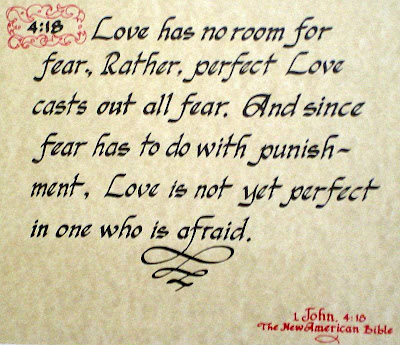 4:18
Love has no room for
fear., Rather, perfect Love
casts out all fear. And since
fear has to do with punish-
ment, Love is not yet perfect
in one who is afraid.
1 John, 4:18
The New American Bible